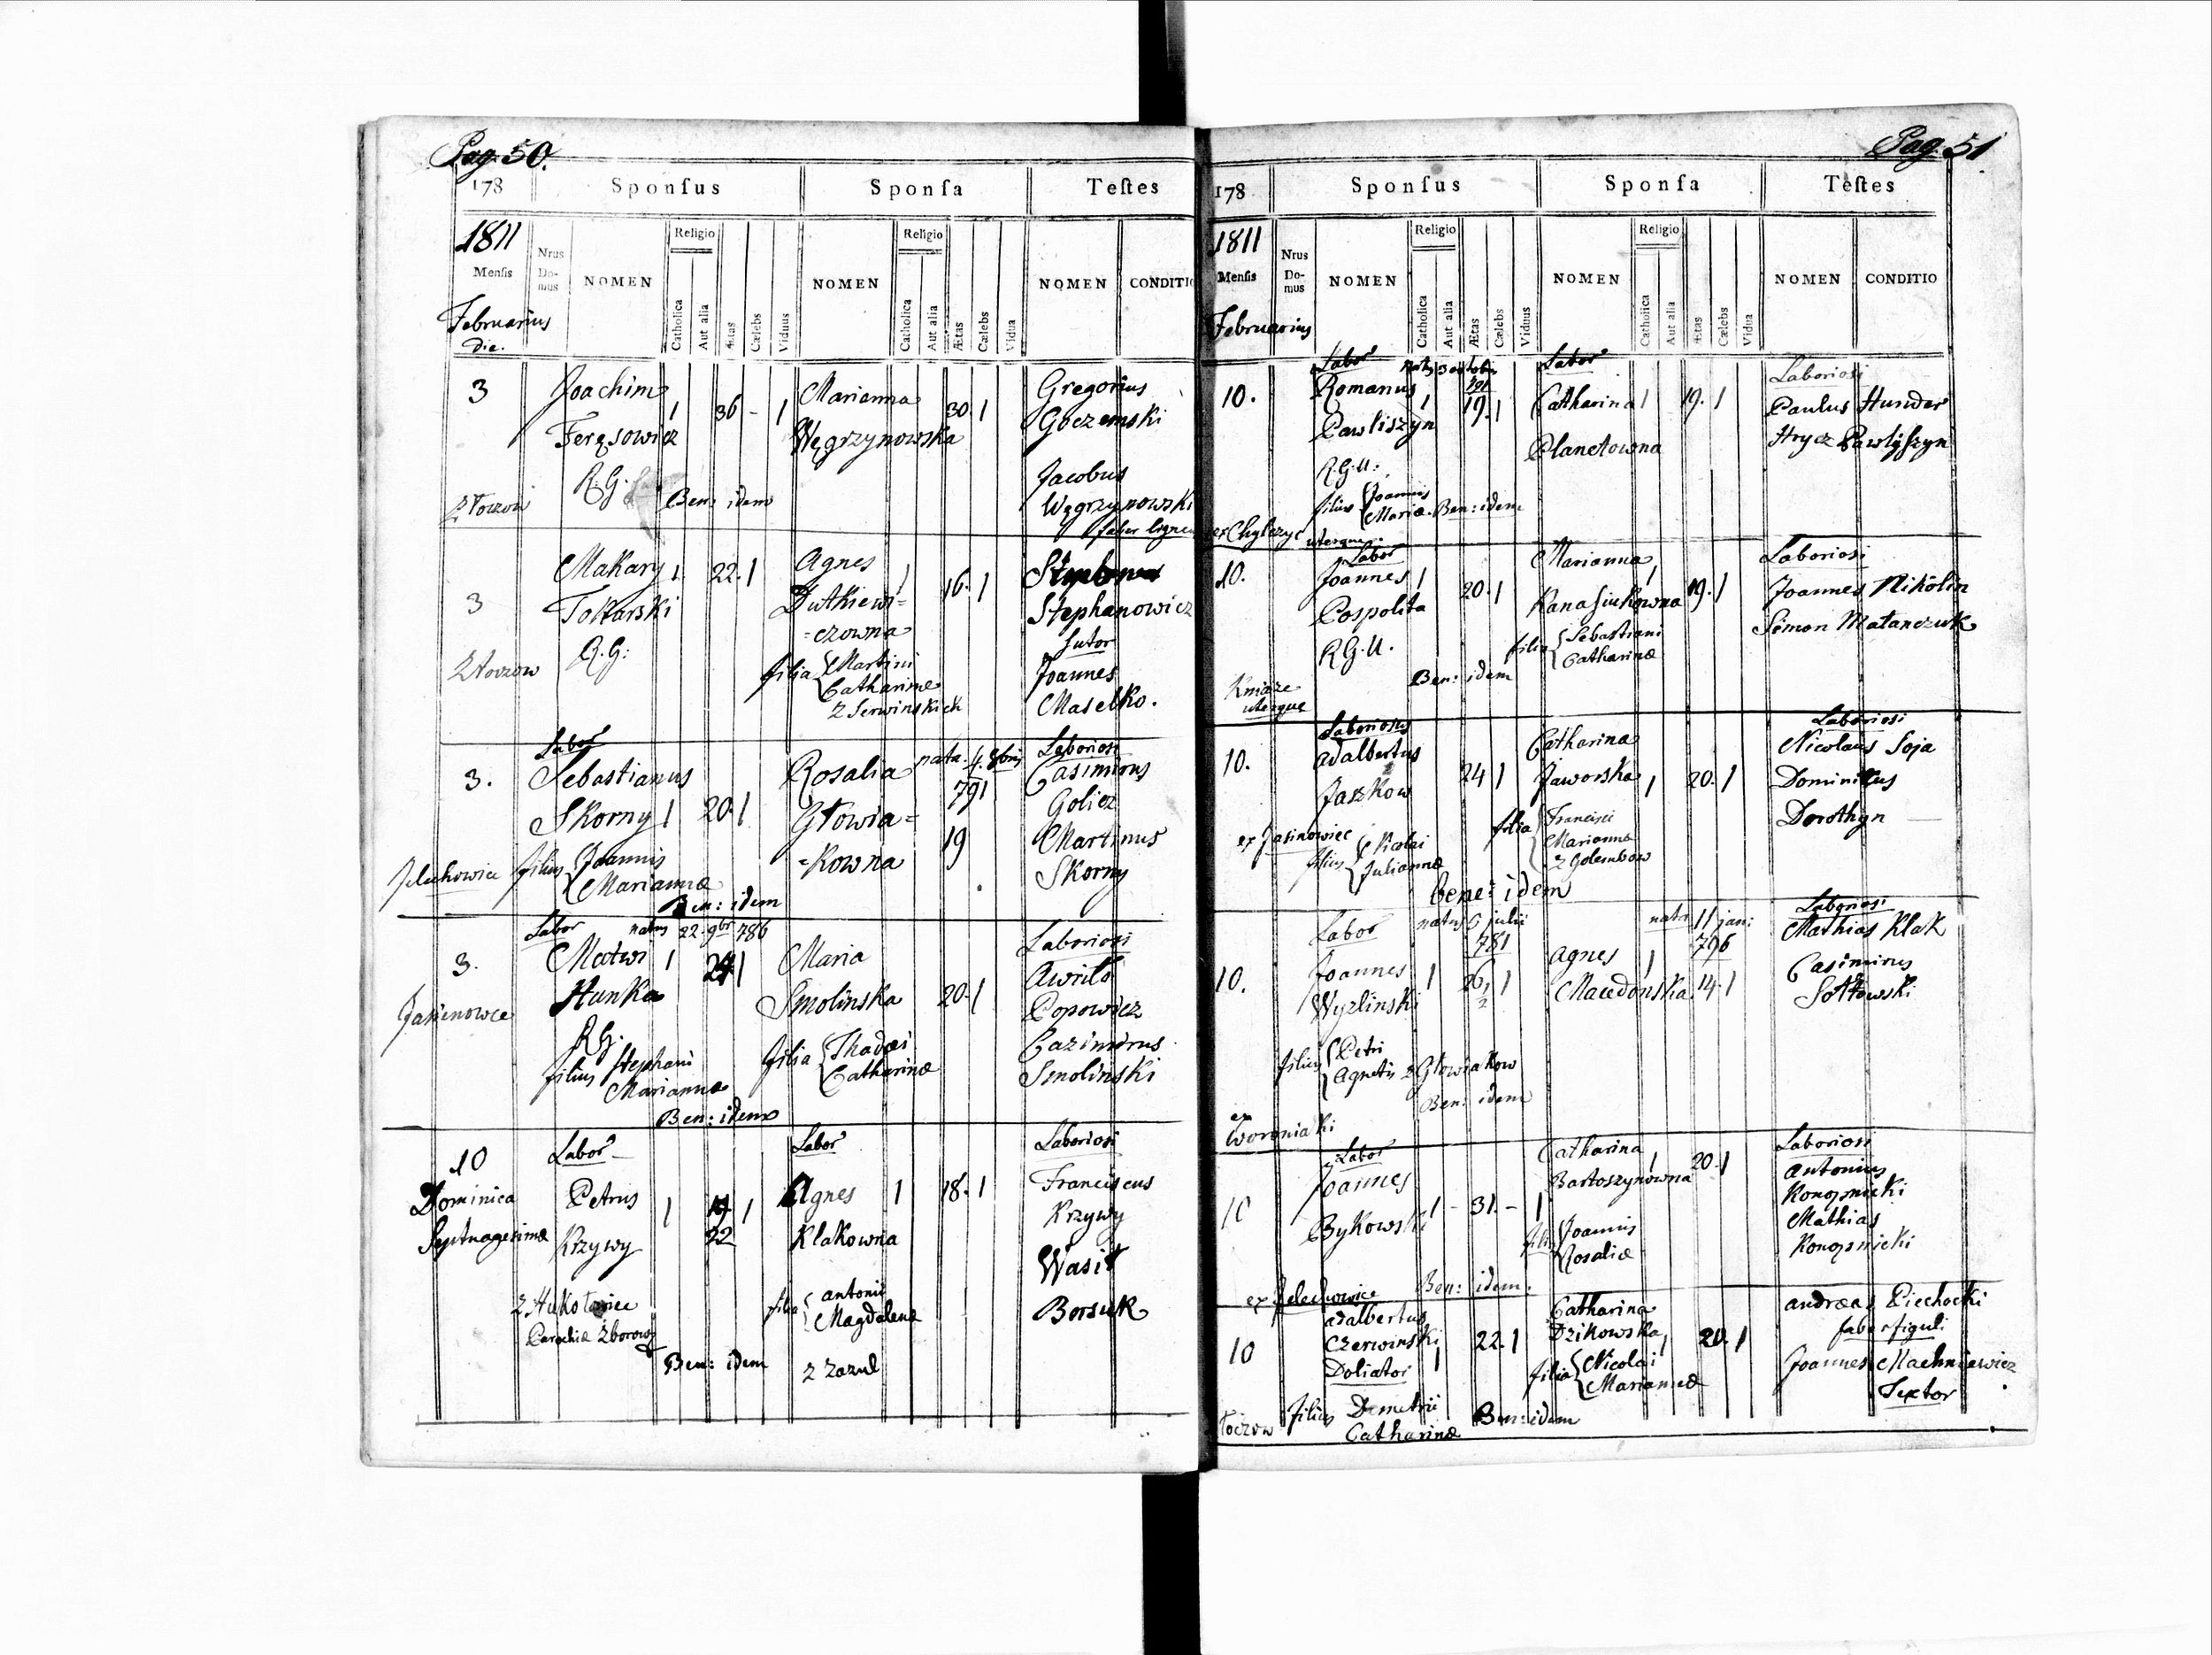 Pag. 50.
178 Sponsus Sponsa Testes
1811
Mensis Nrus Domus NOMEN Religio Catholica Aut alia Ætas Cælebs Viduus NOMEN Religio Catholica Aut alia Ætas Cælebs Vidua NOMEN CONDITI
Februarius
die.
3 Joachim 1 36 - 1 Marianna 30. 1 Gregorius
Węgrzynowska Goczemski
R. G. Jacobus
Złoczow Ben: idem Węgrzynowski
faber
3 Makary 1. 22. 1 Agnes 1 16. 1
Tokarski Dutkiewi= Stephanowicz
R. G: =czowna Sutor
Złoczow filia Martini Joannes
Catharinæ Maselko.
z Serwinskich
Labor Laboriosi
3. Sebastianus Rosalia nata. 4. 8bris Casimirus
Skorny 1 20. 1 Głowia= 791 Golicz
=kowna 19 Martinus
filius Joannis Skorny
Mariannæ
Ben: idem
Labor natus 22. 9br 786
3. Matwi 1 24 1 Maria Laboriosi
Hunka Smolinska 20. 1 Awriło
Popowicz
RG. filia Thadæi Cazimirus
filius Stephani Catharinæ Smolinski
Mariannæ
Ben: idem
10 Labor Labor Laboriosi
Dominica Petrus 1 1 Agnes 1 18. 1 Franciscus
Septuagesimæ Krzywy 22 Klakowna Krzywy
Wasil
filia Antonii Borsuk
Parochiæ Magdalenæ
Ben: idem z Zazul
Pag. 51
178 Sponsus Sponsa Testes
1811
Mensis Nrus Domus NOMEN Religio Catholica Aut alia Ætas Cælebs Viduus NOMEN Religio Catholica Aut alia Ætas Cælebs Vidua NOMEN CONDITIO
Februarius
Labor Labor Laboriosi
10. Romanus 1 19. 1 Catharina 1 19. 1 Paulus Hunder
Pawliszyn Planetowna Hrycz Pawlyszyn
R. G. U:
filius Joannis
Mariæ. Ben: idem
uterque.
Labor Marianna Laboriosi
10. Joannes 1 20. 1 1 19. 1 Joannes Nikolin
Pospolita Simon Matanczuk
R G. U. filia Sebastiani
Catharinæ
Kniaze Ben: idem
uterque
Laboriosus Laboriosi
10. Adalbertus 24 1 Catharina Nicolaus Soja
Jaszkow Jaworska 1 20. 1 Dominikus
filia Francisci Dorothyn
ex Jasinowiec filius Nicolai Mariannæ
Juliannæ z Golembow
bene: idem
Labor natus 6 julii nata 11 jan: Laboriosi
781 796 Mathias Klak
10. Joannes 1 26 1/2 1 Agnes 1 14. 1 Casimirus
Wyzlinski Macedonska Sołtowski
filius Petri
Agnetis z Głowiakow
Ben: idem
ex
Woroniaki
Labor Catharina 1 20. 1 Laboriosi
10 Joannes Bartoszynowna Antonius
Bykowski 1 - 31. - 1 Konopnicki
Joannis Mathias
Rosaliæ Konopnicki
ex Jelechowice Ben: idem.
Adalbertus Catharina Andreas Piechocki
10 Czerwinski 22. 1 Dzikowska 1 20. 1 faber figuli
Doliator 1 filia Nicolai Joannes Machniewicz
Mariannæ Textor
filius Demetrii Ben: idem
Catharinæ